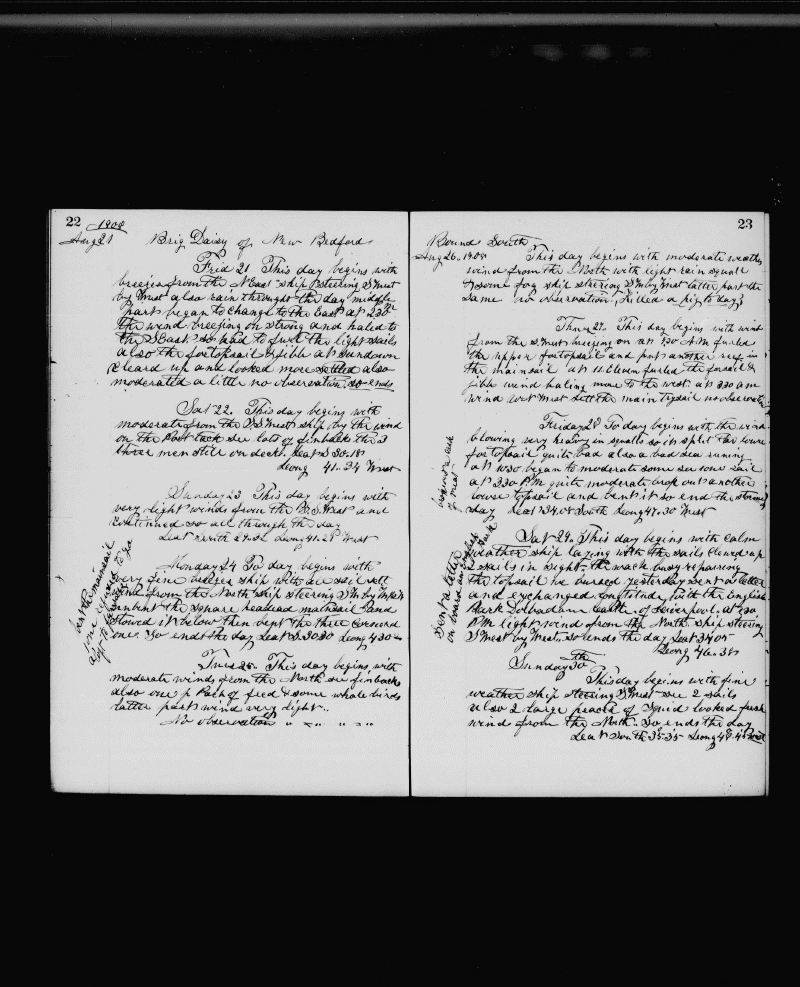 22 1908
Aug 21 Brig Daisy of New Bedford
Frid 21 This day begins with
breezes from the N East ship steering S West
by West also rain throught the day middle
part began to change to the East at 2 30
the wind breezing on strong and haled to
the S East so had to furl the light sails
also the fortopsail & jibb at sundown
cleard up and looked more settled also
moderated a little no observation so ends
Sat 22. This day begins with
moderate from the S West ship by the wind
on the Port tack see lots of finbacks the 3
three men still on deck. Leat S 30.18
Leong 41.34 West
Sunday 23 This day begins with
very light winds from the S West and
continued so all through the day
Leat South 29.52 Leong 41.29 West
bent the mainsail
one refused to go
aft to
Monday 24 To day begins with
very fine breezes ship with all sail sett
wind from the North ship steering S W by West
unbent the square headead mainsail and
stowed it below then bent the three cornerd
one. So ends the day Leat S 30.30 Leong 43 0
Tues 25. This day begins with
moderate winds from the North see finbacks
also one p Patch of feed & some whale birds
latter part wind very light..
No observation " " " "
23
Bound South
Aug 26. 1908 This day begins with moderate weather
wind from the North with light rain squalls
& some fog ship steering S W by West latter part the
same no observation, killed a pig to day
Thurs 27. This day begins with wind
from the S West breezing on at 7 30 A.M furled
the upper fortopsail and put another reef in
the mainsail at 11 Eleven furled the forsail &
jibb wind haling more to the west. at 3 30 am
wind West sett the main trysail no observation
Friday 28 To day begins with the wind
blowing very heavy in squalls so it split the lower
fortopsail quite bad also a bad sea runing
at 10 30 began to moderate some see one sail
at 2 30 P.M quite moderate brok out another
lower topsail and bent it so end the stormy
day Leat 34.08 South Leong 47.30 West
of meat
Sent a letter
on board
Sat 29. This day begins with calm
weather ship laying with the sails clued up
2 sails in sight. the wach busy repairing
the topsail we bursed yesterday sent a letter
and exchanged longitude with the English
Bark Dolbadarn Castle of Liverpool. at 7 30
P.M light wind from the North. ship steering
S West by West. so ends the day Leat 34.05
Leong 46.38
Sunday 30th
This day begins with fine
weather ship steering S West see 2 sails
also 2 large peaces of squid looked fresh
wind from the North. So ends the day
Leat South 35.35 Leong 48.45 West